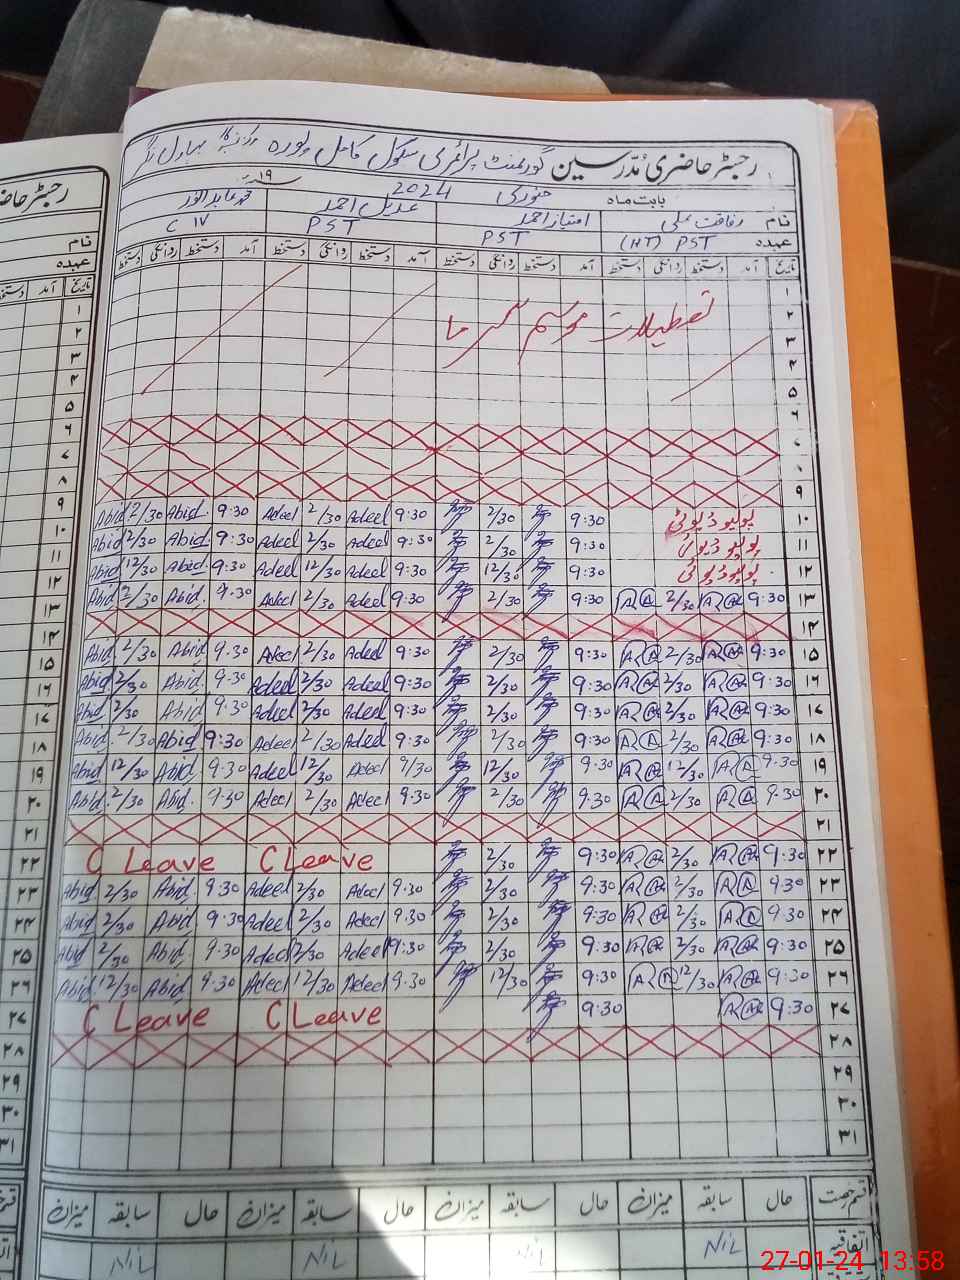 رجسٹر حاضری مدرسین گورنمنٹ پرائمری سکول کامل پورہ
بابت ماہ جنوری 2024 ۱۹ء
نام رفاقت علی امتیاز احمد عدیل احمد محمد عابد انور
عہدہ PST (HT) PST PST C IV
تاریخ آمد دستخط روانگی دستخط آمد دستخط روانگی دستخط آمد دستخط روانگی دستخط آمد دستخط روانگی دستخط
۱
۲ تعطیلات موسم سرما
۳
۴
۵
۶
۷
۸
۹
۱۰ پولیو ڈیوٹی 9:30 2/30 9:30 Adeel 2/30 Adeel 9:30 Abid 2/30 Abid
۱۱ پولیو ڈیوٹی 9:30 2/30 9:30 Adeel 2/30 Adeel 9:30 Abid 2/30 Abid
۱۲ پولیو ڈیوٹی 9:30 12/30 9:30 Adeel 12/30 Adeel 9:30 Abid 12/30 Abid
۱۳ 9:30 2/30 9:30 2/30 9:30 Adeel 2/30 Adeel 9:30 Abid 2/30 Abid
۱۴
۱۵ 9:30 2/30 9:30 2/30 9:30 Adeel 2/30 Adeel 9:30 Abid 2/30 Abid
۱۶ 9:30 2/30 9:30 2/30 9:30 Adeel 2/30 Adeel 9:30 Abid 2/30 Abid
۱۷ 9:30 2/30 9:30 2/30 9:30 Adeel 2/30 Adeel 9:30 Abid 2/30 Abid
۱۸ 9:30 2/30 9:30 2/30 9:30 Adeel 2/30 Adeel 9:30 Abid 2/30 Abid
۱۹ 9:30 12/30 9:30 12/30 9/30 Adeel 12/30 Adeel 9:30 Abid 12/30 Abid
۲۰ 9:30 2/30 9:30 2/30 9:30 Adeel 2/30 Adeel 9:30 Abid 2/30 Abid
۲۱
۲۲ 9:30 2/30 9:30 2/30 C Leave C Leave
۲۳ 9:30 2/30 9:30 2/30 9:30 Adeel 2/30 Adeel 9:30 Abid 2/30 Abid
۲۴ 9:30 2/30 9:30 2/30 9:30 Adeel 2/30 Adeel 9:30 Abid 2/30 Abid
۲۵ 9:30 2/30 9:30 2/30 9:30 Adeel 2/30 Adeel 9:30 Abid 2/30 Abid
۲۶ 9:30 12/30 9:30 12/30 9:30 Adeel 12/30 Adeel 9:30 Abid 12/30 Abid
۲۷ 9:30 9:30 C Leave C Leave
۲۸
۲۹
۳۰
۳۱
قسم رخصت حال سابقہ میزان حال سابقہ میزان حال سابقہ میزان حال سابقہ میزان
اتفاقیہ NIL NIL NIL NIL
27-01-24 13:58
رجسٹر حاضری
نام
عہدہ
تاریخ آمد دستخط
۱
۲
۳
۴
۵
۶
۷
۸
۹
۱۰
۱۱
۱۲
۱۳
۱۴
۱۵
۱۶
۱۷
۱۸
۱۹
۲۰
۲۱
۲۲
۲۳
۲۴
۲۵
۲۶
۲۷
۲۸
۲۹
۳۰
۳۱